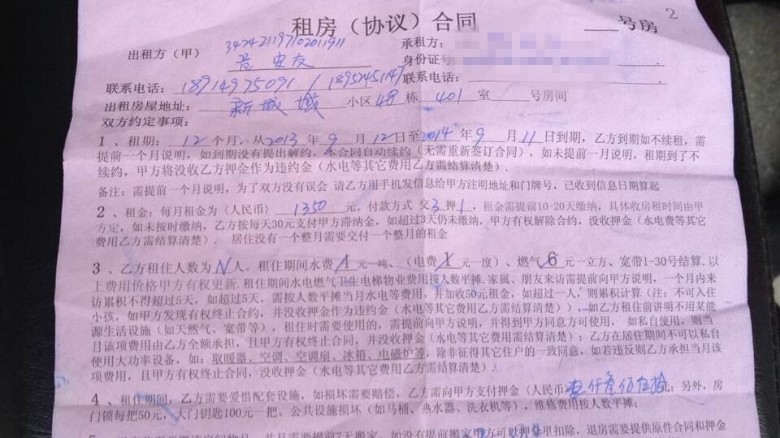 租房（协议）合同 号房 2
342421197102011911 承租方：
出租方（甲） 身份证号
联系电话：18914975091 / 18952451147 联系电话：
出租房屋地址：新城域 小区 48 栋 401 室 号房间
双方约定事项：
1、租期：12个月，从2013年9月12日至2014年9月11日到期，乙方到期如不续租，需
提前一个月说明，如到期没有提出解约，本合同自动续约（无需重新签订合同），如未提前一月说明，租期到了不
续约，甲方将没收乙方押金作为违约金（水电等其它费用乙方需结算清楚）．
备注：需提前一个月说明，为了双方没有误会 请乙方用手机发信息给甲方注明地址和门牌号，已收到信息日期算起
2、租金：每月租金为（人民币）1350元，付款方式 交3押1，租金需提前10-20天缴纳，具体收房租时间由甲
方定，如未按时缴纳，乙方按每天30元支付甲方滞纳金，如超过3天仍未缴纳，甲方有权解除合约，没收押金（水电费等其它
费用乙方需结算清楚）． 居住没有一个整月需要交付一个整月的租金
3、乙方租住人数为N人．租住期间水费 元一吨、（电费 元一度）、燃气6元一立方、宽带1-30号结算．以
上费用价格甲方有权更新．租住期间水电燃气卫生电梯物业费用按人数平摊．家属、朋友来访需提前向甲方说明，一个月内来
访累积不得超过5天，如超过5天，需按人数平摊当月水电等费用，并加收50元租金，如超过一人，则累积计算（注：不可入住
小孩，如甲方发现有权终止合约，并没收押金作为违约金（水电等其它费用乙方需结算清楚）．如乙方租住前讲明不用某能
源生活设施（如天然气、宽带等），租住时需要使用的，需提前向甲方说明，并得到甲方同意方可使用， 如私自使用，则当
月该项费用由乙方全额承担，且甲方有权终止合同，并没收押金（水电等其它费用乙方需结算清楚）；乙方在居住期间不可以私自
使用大功率设备，如：取暖器、空调、空调扇、冰箱、电磁炉等，除非征得其它住户的一致同意，如若违反则乙方承担当月该
项费用，且甲方有权终止合同，没收押金（水电等其它费用乙方需结算清楚）．
4、租住期间，乙方需要爱惜配套设施，如损坏需要赔偿，乙方需向甲方支付押金（人民币） ；另外，房
门锁每把50元，大门钥匙100元一把，公共设施损坏（如马桶、热水器、洗衣机等），维修费用按人数平摊；